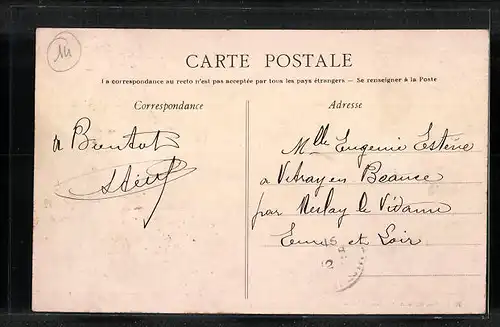 14
CARTE POSTALE
La correspondance au recto n'est pas acceptée par tous les pays étrangers — Se renseigner à la Poste
Correspondance
Adresse
a Bientot
Mlle Eugenie Estève
a Vitray en Beauce
par Meslay le Vidame
Eure et Loir
15